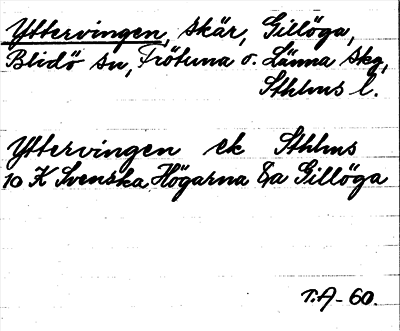 Yttervingen, skär, Gillöga,
Blidö sn, Frötuna o. Länna Skg,
Sthlms l.
Yttervingen ek Sthlms
10 K Svenska Högarna &a Gillöga
T.A-60.